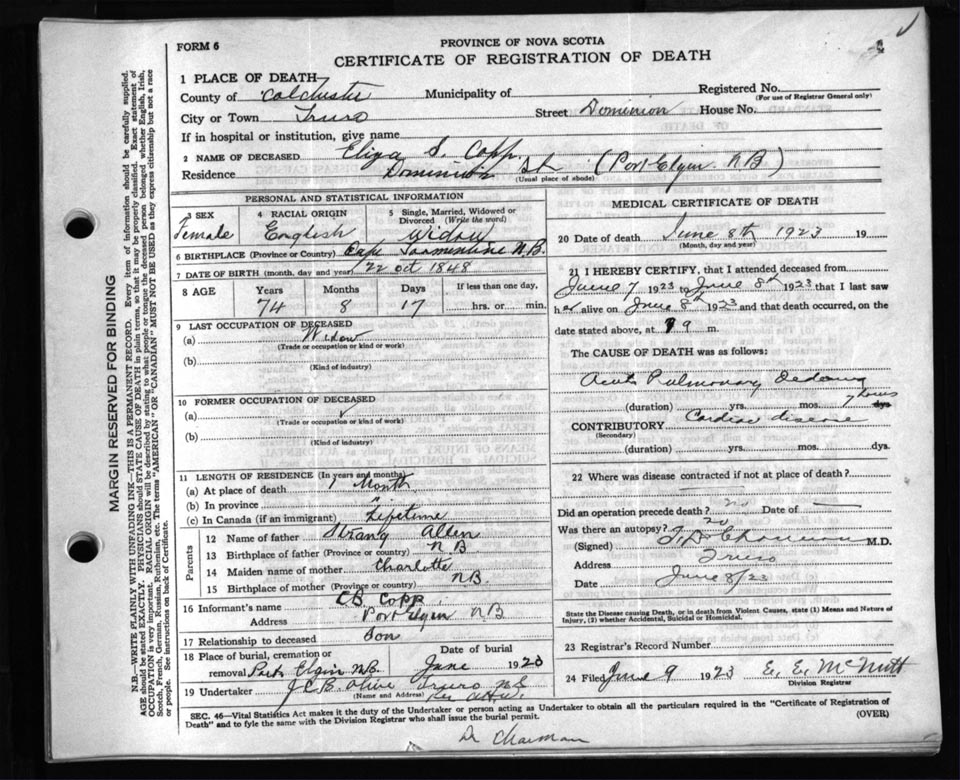 FORM 6
PROVINCE OF NOVA SCOTIA
CERTIFICATE OF REGISTRATION OF DEATH
1 PLACE OF DEATH
County of Colchester Municipality of Registered No.
(For use of Registrar General only)
City or Town Truro Street Dominion House No.
If in hospital or institution, give name
2 NAME OF DECEASED Eliza S. Copp
Residence Dominion St (Port Elgin N B)
(Usual place of abode)
PERSONAL AND STATISTICAL INFORMATION
3 SEX 4 RACIAL ORIGIN 5 Single, Married, Widowed or Divorced (Write the word)
Female English Widow
6 BIRTHPLACE (Province or Country) Cape Tormentine N.B.
7 DATE OF BIRTH (month, day and year) 22 Oct 1848
8 AGE Years Months Days If less than one day,
74 8 17 hrs. or min.
9 LAST OCCUPATION OF DECEASED
(a) Widow
(Trade or occupation or kind or work)
(b)
(Kind of industry)
10 FORMER OCCUPATION OF DECEASED
(a)
(Trade or occupation or kind of work)
(b)
(Kind of industry)
11 LENGTH OF RESIDENCE (In years and months)
(a) At place of death 1 Month
(b) In province "
(c) In Canada (if an immigrant) Lifetime
Parents
12 Name of father Strang Allen
13 Birthplace of father (Province or country) N B
14 Maiden name of mother Charlotte
15 Birthplace of mother (Province or country) N B
16 Informant's name C B Copp
Address Port Elgin N B
17 Relationship to deceased Son
18 Place of burial, cremation or removal Port Elgin N.B. Date of burial June 1923
19 Undertaker J C B Olive Truro N S
(Name and Address)
MEDICAL CERTIFICATE OF DEATH
20 Date of death June 8th 1923 19
(Month, day and year)
21 I HEREBY CERTIFY, that I attended deceased from
June 7 1923 to June 8th 1923 that I last saw
her alive on June 8th 1923 and that death occurred, on the
date stated above, at 9 m.
The CAUSE OF DEATH was as follows:
Acute Pulmonary Oedema
(duration) yrs. mos. 7 hours dys.
CONTRIBUTORY Cardiac disease
(Secondary)
(duration) yrs. mos. dys.
22 Where was disease contracted if not at place of death?
Did an operation precede death? no Date of —
Was there an autopsy? no
(Signed) M.D.
Address Truro
Date June 8/23
State the Disease causing Death, or in death from Violent Causes, state (1) Means and Nature of
Injury, (2) whether Accidental, Suicidal or Homicidal.
23 Registrar's Record Number
24 Filed June 9 1923 E. E. McNutt
Division Registrar
SEC. 46—Vital Statistics Act makes it the duty of the Undertaker or person acting as Undertaker to obtain all the particulars required in the "Certificate of Registration of
Death" and to fyle the same with the Division Registrar who shall issue the burial permit.
(OVER)
MARGIN RESERVED FOR BINDING
N.B.—WRITE PLAINLY WITH UNFADING INK—THIS IS A PERMANENT RECORD. Every item of information should be carefully supplied.
AGE should be stated EXACTLY. PHYSICIANS should STATE CAUSE OF DEATH in plain terms, so that it may be properly classified. Exact statement of
OCCUPATION is very important. RACIAL ORIGIN will be described by stating to what people or tongue the deceased person belonged whether English, Irish,
Scotch, French, German, Russian, Ruthenian, etc. The terms "AMERICAN" OR "CANADIAN" MUST NOT BE USED as they express citizenship but not a race
or people. See instructions on back of Certificate.